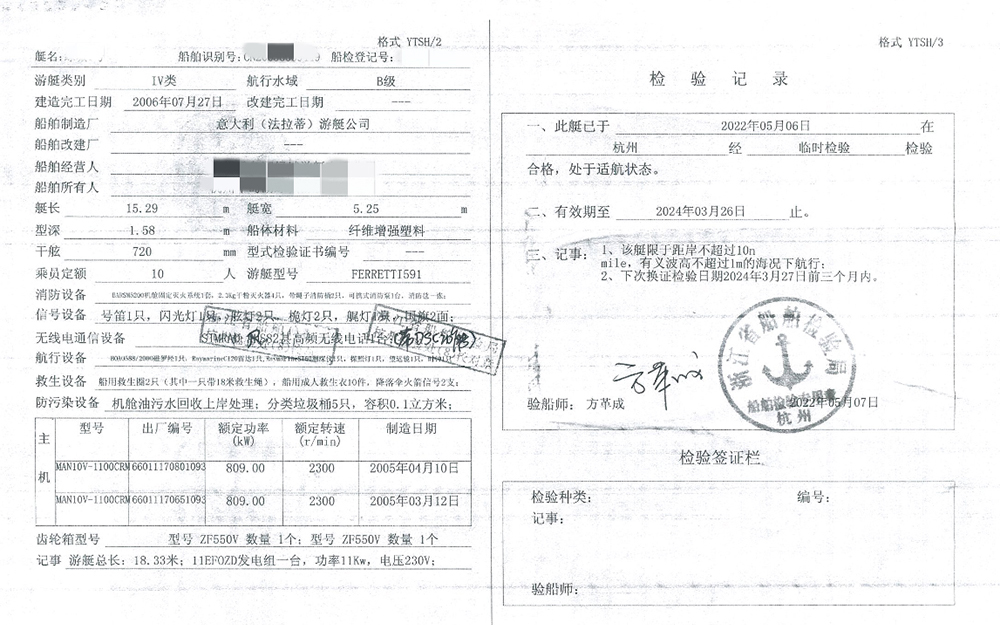 格式 YTSH/2
艇名: 船舶识别号: 船检登记号:
游艇类别 IV类 航行水域 B级
建造完工日期 2006年07月27日 改建完工日期 ---
船舶制造厂 意大利（法拉蒂）游艇公司
船舶改建厂 ---
船舶经营人
船舶所有人
艇长 15.29 m 艇宽 5.25 m
型深 1.58 m 船体材料 纤维增强塑料
干舷 720 mm 型式检验证书编号 ---
乘员定额 10 人 游艇型号 FERRETTI591
消防设备
信号设备 号笛1只，闪光灯1只，舷灯2只，桅灯2只，艉灯1盏，国旗2面；
无线电通信设备 甚高频无线电话1台
航行设备
救生设备 船用救生圈2只（其中一只带18米救生绳），船用成人救生衣10件，降落伞火箭信号2支；
防污染设备 机舱油污水回收上岸处理；分类垃圾桶5只，容积0.1立方米；
主机 型号 出厂编号 额定功率(kW) 额定转速(r/min) 制造日期
MAN10V-1100CRM 66011170801093 809.00 2300 2005年04月10日
MAN10V-1100CRM 66011170651093 809.00 2300 2005年03月12日
齿轮箱型号 型号 ZF550V 数量 1个；型号 ZF550V 数量 1个
记事 游艇总长：18.33米；11EFOZD发电组一台，功率11Kw，电压230V；
格式 YTSH/3
检 验 记 录
一、此艇已于 2022年05月06日 在
杭州 经 临时检验 检验
合格，处于适航状态。
二、有效期至 2024年03月26日 止。
三、记事： 1、该艇限于距岸不超过10n
mile，有义波高不超过1m的海况下航行；
2、下次换证检验日期2024年3月27日前三个月内。
方革成
浙江省船舶检验局
船舶检验专用章
杭州
验船师: 方革成 2022年05月07日
检验签证栏
检验种类: 编号:
记事:
验船师: